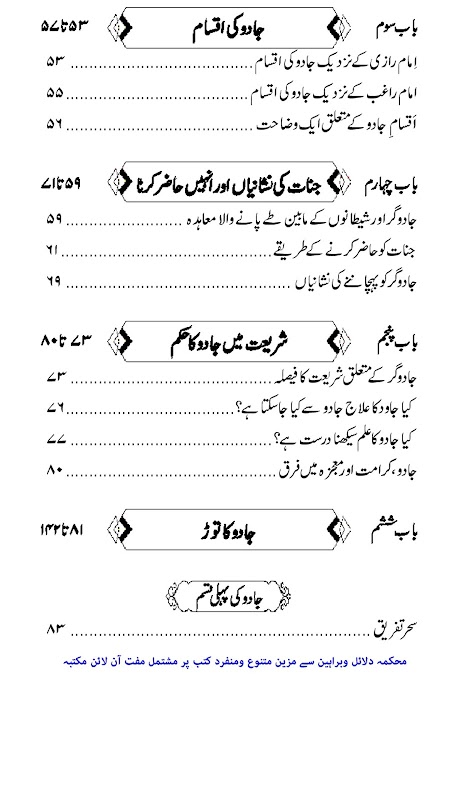 باب سوم جادو کی اقسام ۵۳ تا ۵۷
اِمام رازی کے نزدیک جادو کی اقسام ۵۳
امام راغب کے نزدیک جادو کی اقسام ۵۵
اَقسامِ جادو کے متعلق ایک وضاحت ۵۶
باب چہارم جنات کی نشانیاں اور انہیں حاضر کرنا ۵۹ تا ۷۱
جادوگر اور شیطانوں کے مابین طے پانے والا معاہدہ ۵۹
جنات کو حاضر کرنے کے طریقے ۶۱
جادوگر کو پہچاننے کی نشانیاں ۶۹
باب پنجم شریعت میں جادو کا حکم ۷۳ تا ۸۰
جادوگر کے متعلق شریعت کا فیصلہ ۷۳
کیا جاود کا علاج جادو سے کیا جاسکتا ہے؟ ۷۶
کیا جادو کا علم سیکھنا درست ہے؟ ۷۷
جادو، کرامت اور معجزہ میں فرق ۸۰
باب ششم جادو کا توڑ ۸۱ تا ۱۴۲
جادو کی پہلی قسم
سحر تفریق ۸۳
محکمہ دلائل وبراہین سے مزین متنوع ومنفرد کتب پر مشتمل مفت آن لائن مکتبہ